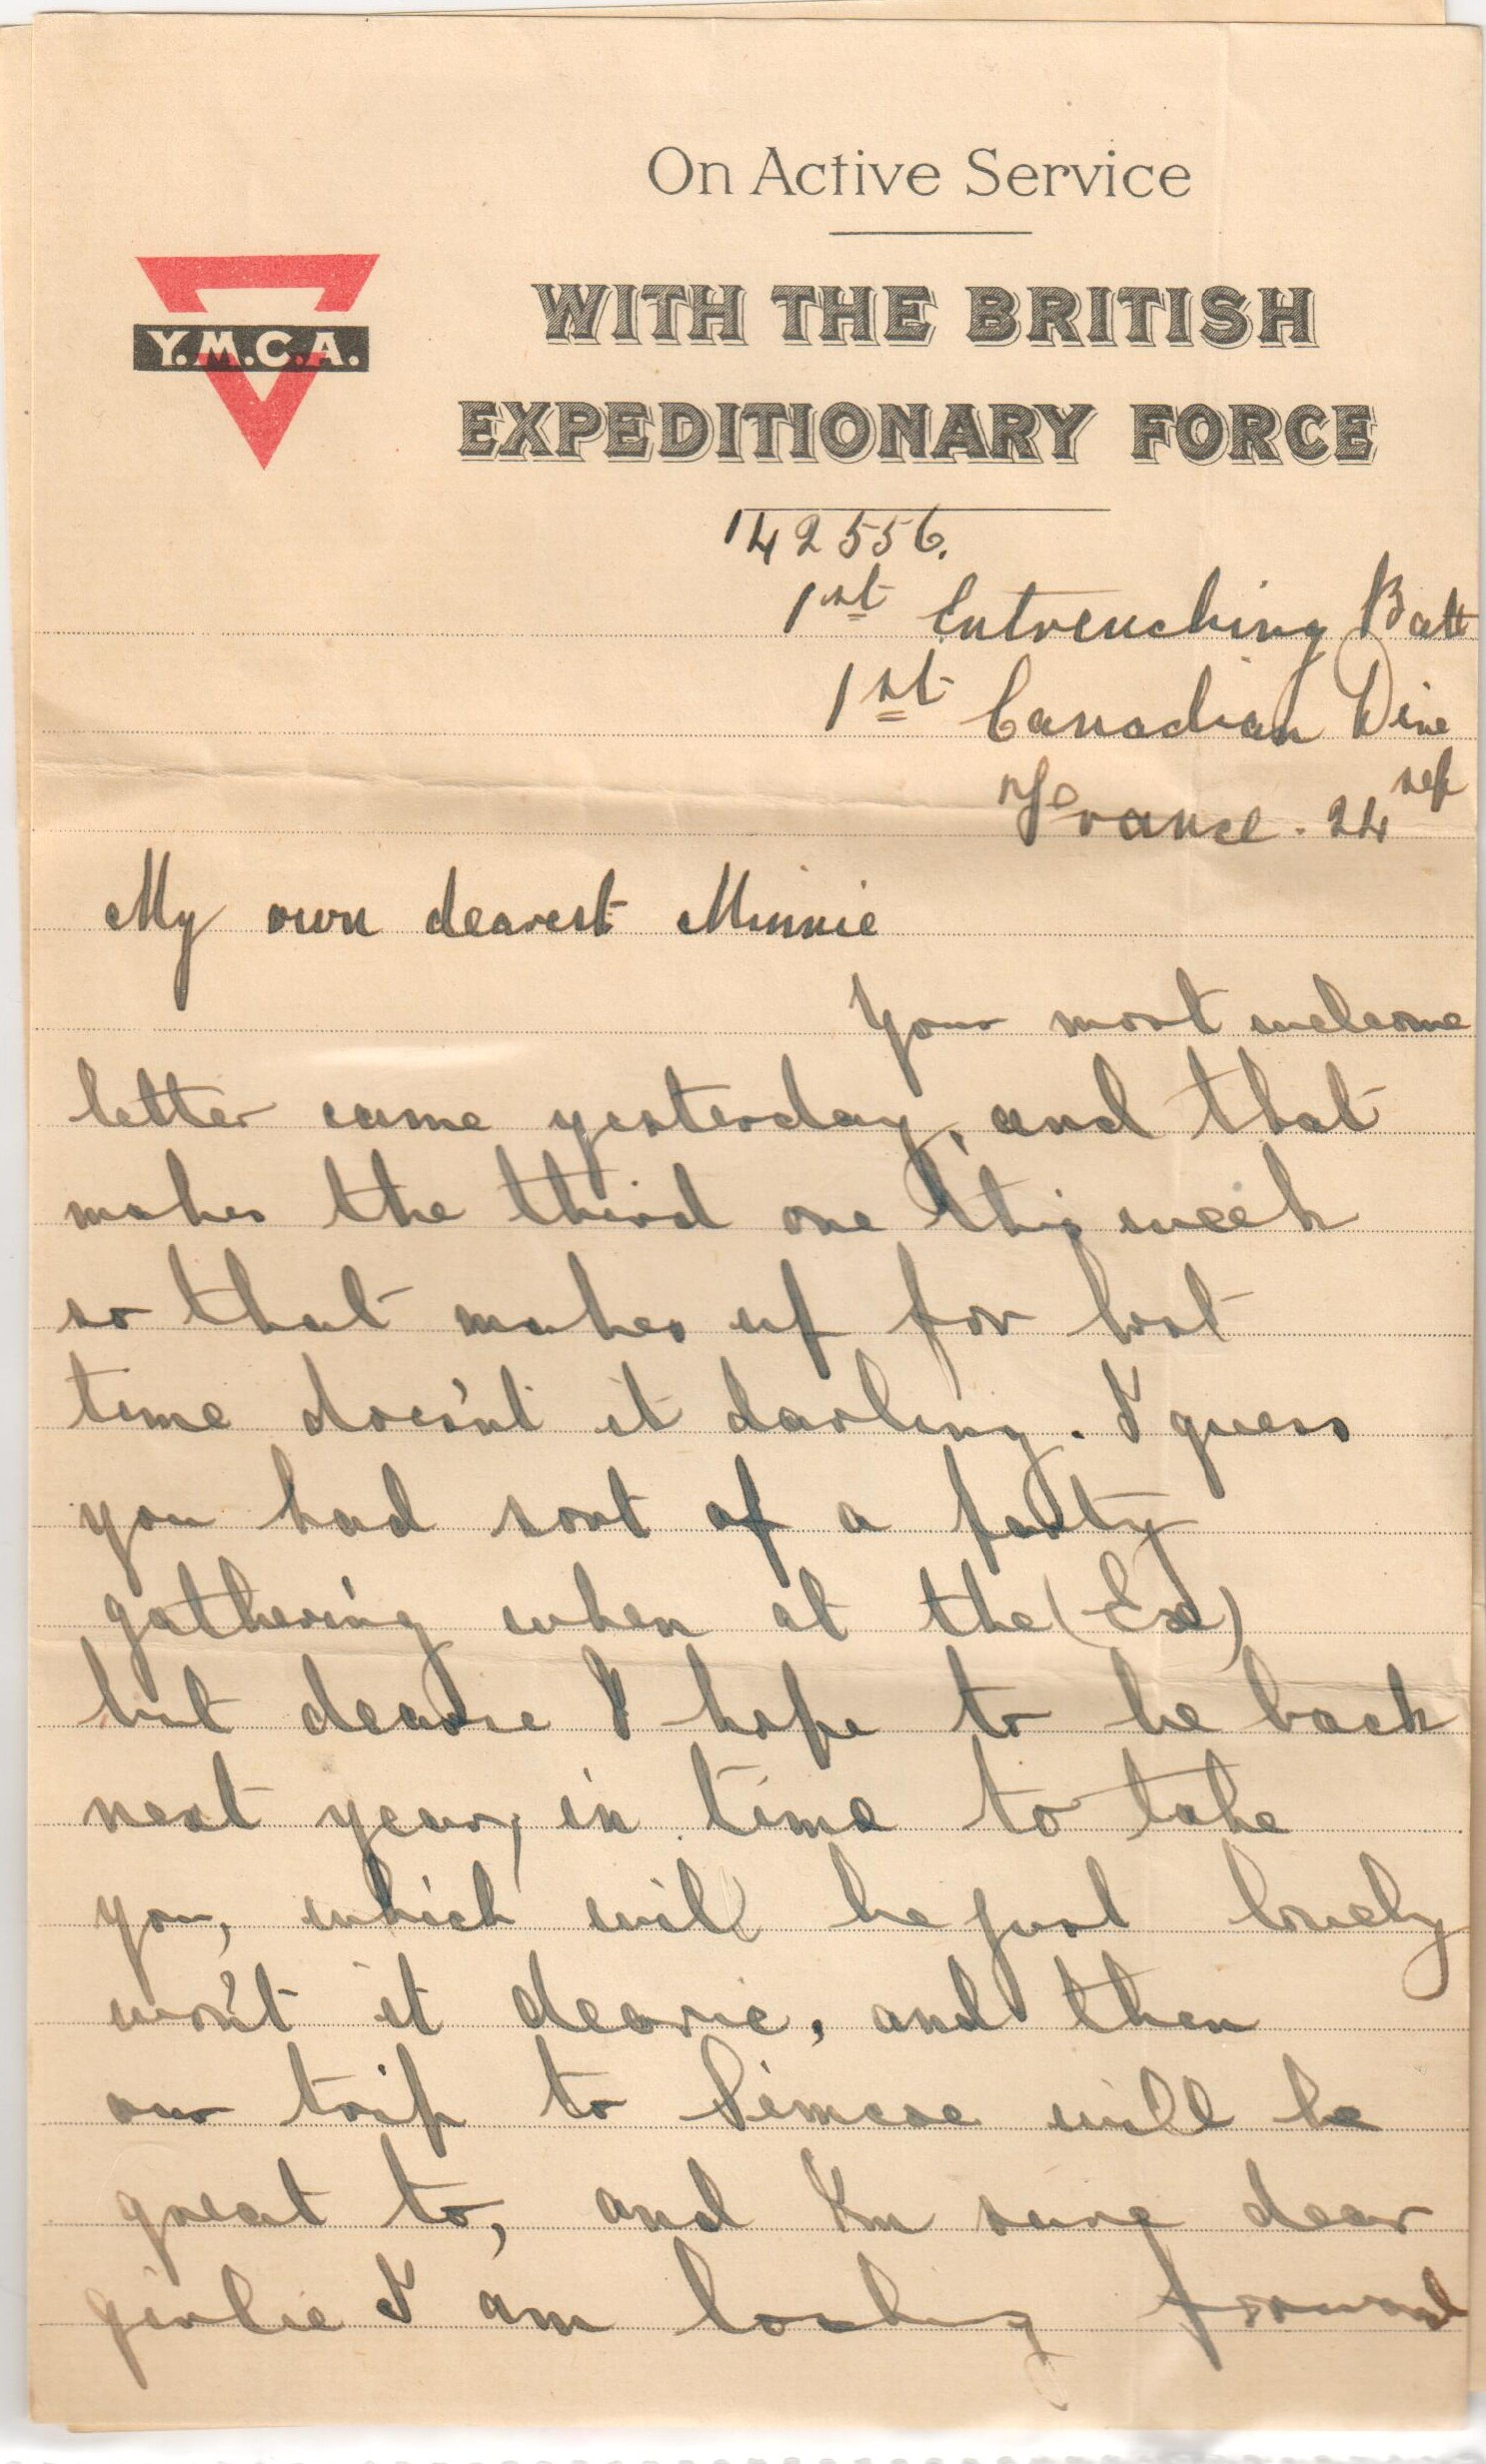 On Active Service
WITH THE BRITISH
Y.M.C.A.
EXPEDITIONARY FORCE
142556.
1st Entrenching Batt
1st Canadian Divn
France. 24 sep
My own dearest Minnie
Your most welcome
letter came yesterday, and that
makes the third one this week
so that makes up for lost
time does'nt it darling. I guess
you had sort of a party
gathering when at the (Ex)
but dearie I hope to be back
next year, in time to take
you, which will be just lovely
won't it dearie, and then
our trip to Simcoe will be
great to, and I'm sure dear
girlie I am looking forward